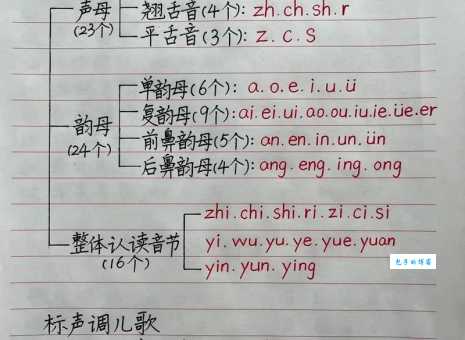 声母 翘舌音(4个): zh.ch.sh.r
(23个) 平舌音(3个): z.c.s
单韵母(6个): a.o.e.i.u.ü
韵母 复韵母(9个): ai.ei.ui.ao.ou.iu.ie.üe.er
(24个) 前鼻韵母(5个): an.en.in.un.ün
后鼻韵母(4个): ang.eng.ing.ong
zhi.chi.shi.ri.zi.ci.si
整体认读音节 yi.wu.yu.ye.yue.yuan
(16个) yin.yun.ying
标声调儿歌